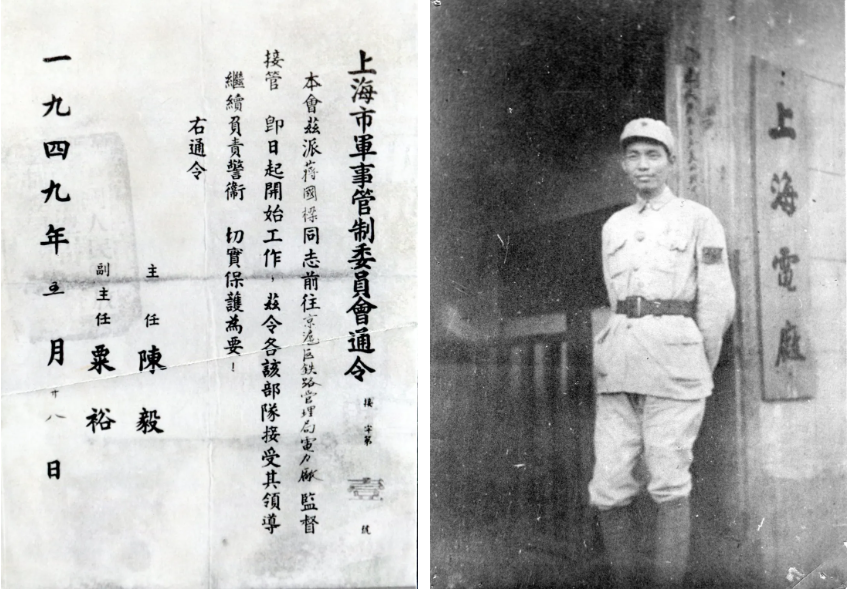 上海市軍事管制委員會通令
接字第
號
本會茲派蔣國樑同志前往京滬區鉄路管理局電力廠監督
接管 卽日起開始工作，茲令各該部隊接受其領導
繼續負責警衞 切實保護為要！
右通令
主任 陳毅
副主任 粟裕
一九四九年五月廿八日
上海電廠